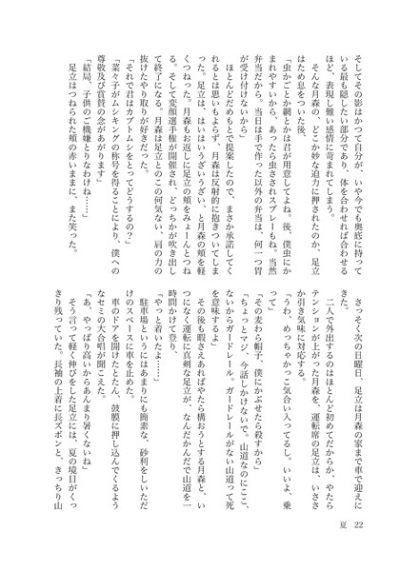 そしてその影はかつて自分が、いや今でも奥底に持って
いる最も隠したい部分であり、体を合わせれば合わせる
ほど、表現し難い感情に苛まれてしまう。
そんな月森の、どこか妙な迫力に押されたのか、足立
はため息をついた後、
「虫かごとか網とかは君が用意してよね。後、僕虫にか
まれやすいから、あったら虫さされスプレーもね。当然
弁当だから。当日は手で作った以外の弁当は、何一つ胃
が受け付けないから」
ほとんどだめもとで提案したので、まさか承諾してく
れるとは思いもよらず、月森は反射的に抱きついてしま
った。足立は、はいはいうざいうざい、と月森の頬を軽
くつねった。月森もお返しに足立の頬をみょーんとつね
る。そして変顔選手権が開催され、どっちかが吹き出し
て終了になる。月森は足立とのこの何気ない、肩の力の
抜けたやり取りが好きだった。
「それで君はカブトムシをとってどうするの？」
「菜々子がムシキングの称号を得ることにより、僕への
尊敬及び賞賛の念があがります」
「結局、子供のご機嫌とりなわけね……」
足立はつねられた頬の赤いままに、また笑った。
さっそく次の日曜日、足立は月森の家まで車で迎えに
きた。
二人で外出するのはほとんど初めてだからか、やたら
テンションが上がった月森を、運転席の足立は、いささ
か引き気味に対応する。
「うわ、めっちゃかっこ気合い入ってるし。いいよ、乗
って」
「その麦わら帽子、僕にかぶせたら殺すから」
「ちょっとマジ、今話しかけないで。山道なのにここ、
ないからガードレール。ガードレールがない山道って死
を意味するよ」
その後も暇さえあればやたら構おうとする月森と、い
つになく運転に真剣な足立が、なんだかんだで山道を一
時間かけて登り、
「やっと着いたよ……」
駐車場というにはあまりにも簡素な、砂利をしいただ
けのスペースに車を止めた。
車のドアを開けたとたん、鼓膜に押し込んでくるよう
なセミの大合唱が聞こえた。
「あ、やっぱり高いからあんまり暑くないね」
そう言って軽く伸びをした足立には、夏の境目がくっ
きり残っていた。長袖の上着に長ズボンと、きっちり山
夏 22